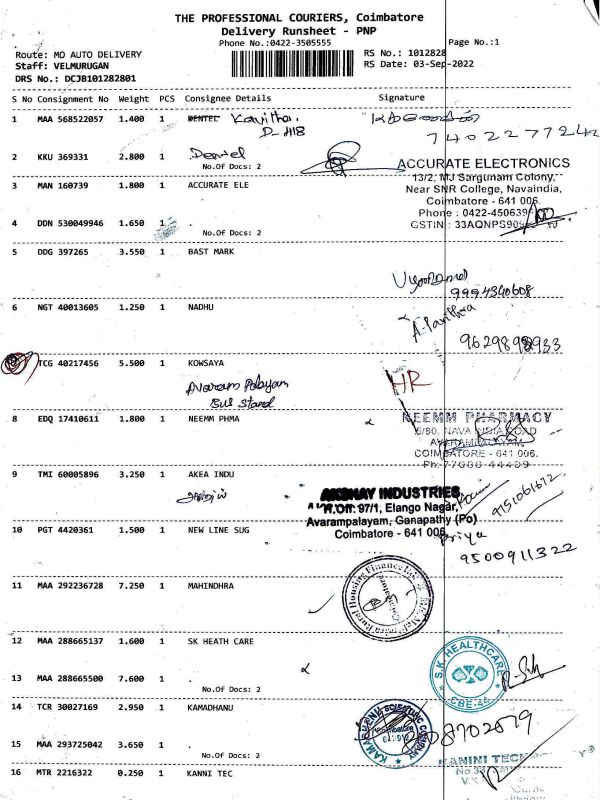 THE PROFESSIONAL COURIERS, Coimbatore
Delivery Runsheet - PNP
Phone No.:0422-3505555
Page No.:1
Route: MO AUTO DELIVERY
RS No.: 1012828
Staff: VELMURUGAN
RS Date: 03-Sep-2022
DRS No.: DCJB101282801
S No Consignment No Weight PCS Consignee Details Signature
1 MAA 568522057 1.400 1 DENTEL Kavitha
D-418
7402277242
2 KKU 369331 2.800 1 Dentel
No.Of Docs: 2
ACCURATE ELECTRONICS
13/2, MJ Sargunam Colony,
3 MAN 160739 1.800 1 ACCURATE ELE
Near SNR College, Navaindia,
Coimbatore - 641 006.
Phone : 0422-450639
4 DDN 530049946 1.650 1
GSTIN : 33AQNPS90
No.Of Docs: 2
5 DDG 397265 3.550 1 BAST MARK
9994340608
6 NGT 40013605 1.250 1 NADHU
A. Pavithra
9629898933
TCG 40217456 5.500 1 KOWSAYA
Avaram Palayam
Bus Stand
HR
8 EDQ 17410611 1.800 1 NEEMM PHMA
NEEMM PHARMACY
5/80, NAVA INDIA ROAD
AVARAMPALAYAM,
COIMBATORE - 641 006.
Ph: 77088 44409
9 TMI 60005896 3.250 1 AKEA INDU
AKSHAY INDUSTRIES
R.Off: 97/1, Elango Nagar,
Avarampalayam, Ganapathy (Po)
Coimbatore - 641 006
9751061672
10 PGT 4420361 1.500 1 NEW LINE SUG
Priya
9500911322
11 MAA 292236728 7.250 1 MAHINDHRA
Rural Housing Finance
Coimbatore
12 MAA 288665137 1.600 1 SK HEATH CARE
S.K. HEALTHCARE
CBE-44
13 MAA 288665500 7.600 1
No.Of Docs: 2
14 TCR 30027169 2.950 1 KAMADHANU
KAMADHENU SCIENTIFIC COMPANY
Coimbatore
15 MAA 293725042 3.650 1
No.Of Docs: 2
KANINI TECH
16 MTR 2216322 0.250 1 KANNI TEC